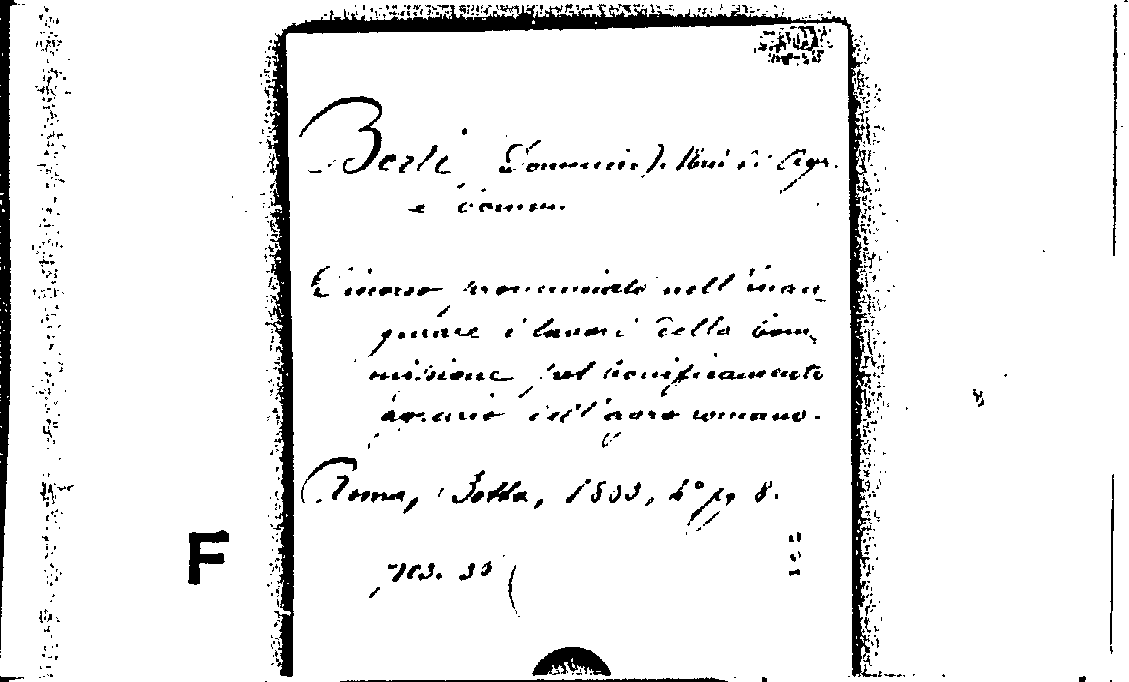 Berti Domenico), Min. di Agr.
e Comm.
Discorso pronunciato nell' inau
gurare i lavori della Com
missione pel bonificamento
agrario dell' agro romano.
Roma, Botta, 1883, 4° pg 8.
F